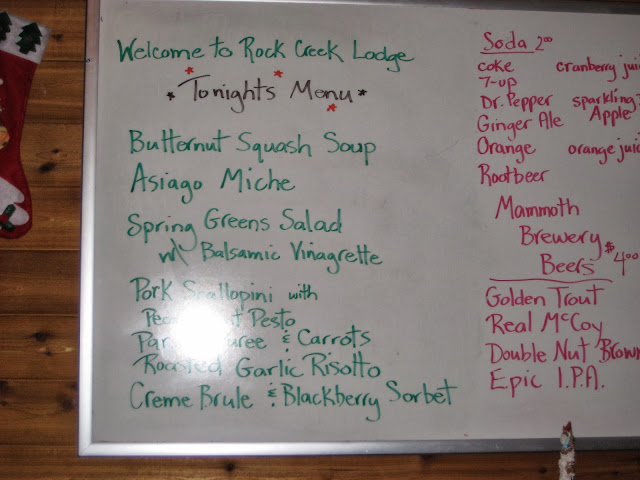 Welcome to Rock Creek Lodge
Tonights Menu
Butternut Squash Soup
Asiago Miche
Spring Greens Salad
w/ Balsamic Vinagrette
Pork Scallopini with
Pesto
& Carrots
Roasted Garlic Risotto
Creme Brule & Blackberry Sorbet
Soda 2.00
coke cranberry jui
7-up
Dr. Pepper sparkling
Ginger Ale Apple
Orange orange juic
Rootbeer
Mammoth
Brewery
Beers $4.00
Golden Trout
Real McCoy
Double Nut Brown
Epic I.P.A.